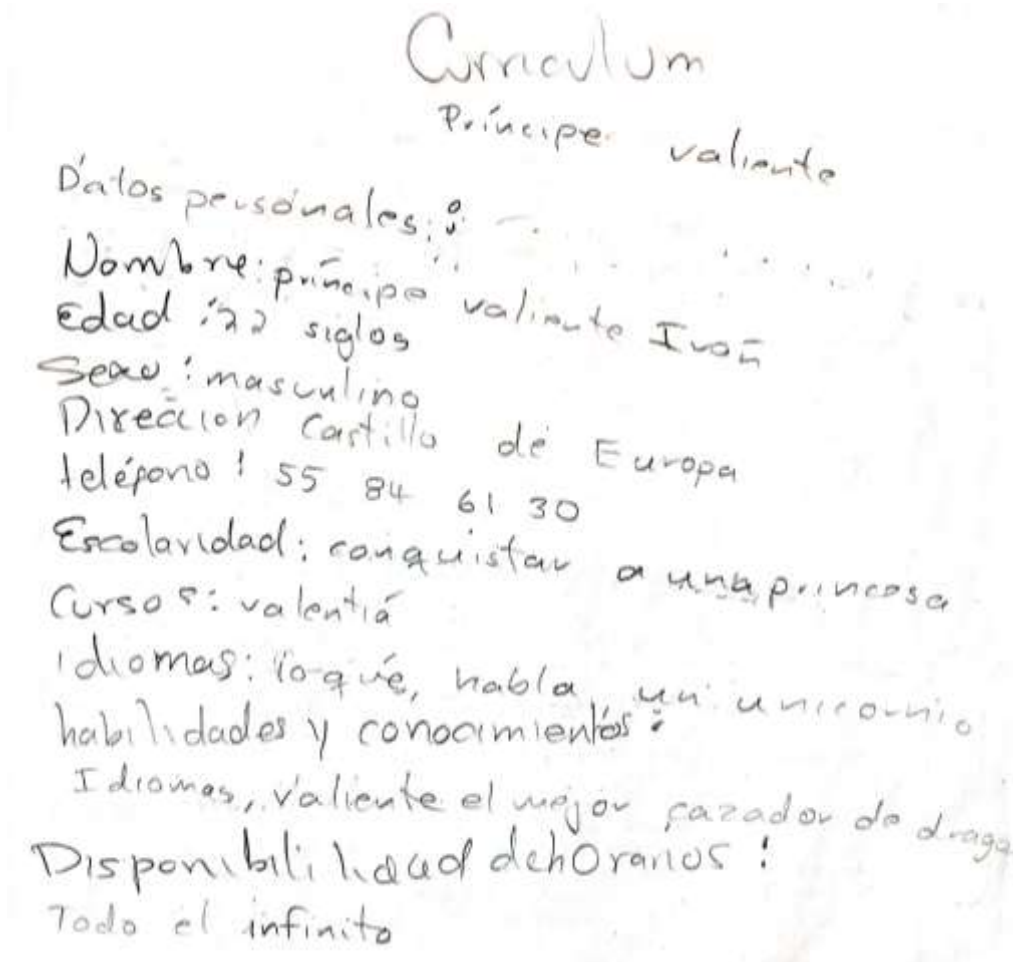 Curriculum
Príncipe valiente
Datos personales:
Nombre: príncipe valiente Ivan
Edad: 22 siglos
Sexo: masculino
Direccion Castillo de Europa
teléfono: 55 84 61 30
Escolaridad: conquistar a una princesa
Cursos: valentiá
idiomas: lo que, habla un unicornio
habilidades y conocimientos:
Idiomas, valiente el mejor cazador de drago
Disponibili
Todo el infinito